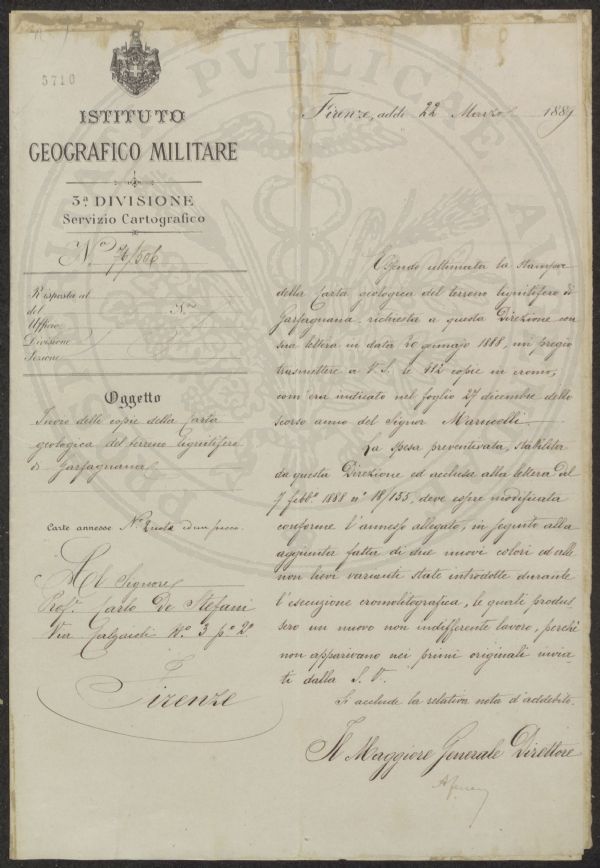 5710
ISTITUTO
GEOGRAFICO MILITARE
3ª DIVISIONE
Servizio Cartografico
N.ro 76/506
Risposta al N.ro
del
Ufficio
Divisione
Sezione
Oggetto
Invio delle copie della Carta
geologica del terreno lignitifero
di Garfagnana
Carte annesse N.
ed un pacco.
Al Signore
Prof.r Carlo De Stefani
Via N.º 3 p.º 2º
Firenze
Firenze, addì 22 Marzo 1889
Essendo ultimata la stampa
della Carta geologica del terreno lignitifero di
Garfagnana, richiesta a questa Direzione con
sua lettera in data 20 gennajo 1888, mi pregio
trasmettere a V. S. le 412 copie in cromo,
com'era indicato nel foglio 27 dicembre dello
scorso anno del Signor Marucelli.
La spesa preventivata, stabilita
da questa Direzione ed acclusa alla lettera del
7 febb.º 1888 n.º 18/155, deve essere modificata
conforme l'annesso allegato, in seguito alla
aggiunta fatta di due nuovi colori ed alle
non lievi varianti state introdotte durante
l'esecuzione cromolitografica, le quali produs
sero un nuovo non indifferente lavoro, perchè
non apparivano nei primi originali invia-
ti dalla S. V.
Si acclude la relativa nota d'addebito.
Il Maggiore Generale Direttore